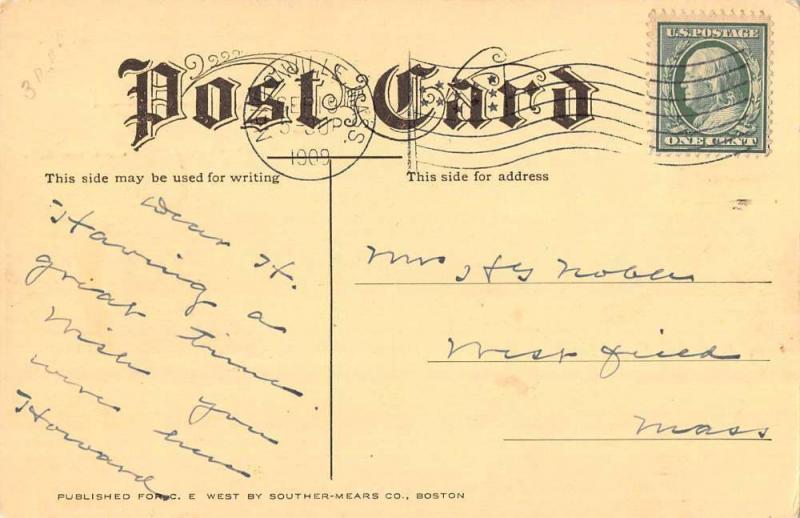 Post Card
VILLE MASS.
1909
U.S. POSTAGE
ONE CENT
This side may be used for writing
This side for address
Dear H.
Having a
great time
Wish you
were here
Howard
Mrs H G Noble
Westfield
Mass
PUBLISHED FOR C. E WEST BY SOUTHER-MEARS CO., BOSTON